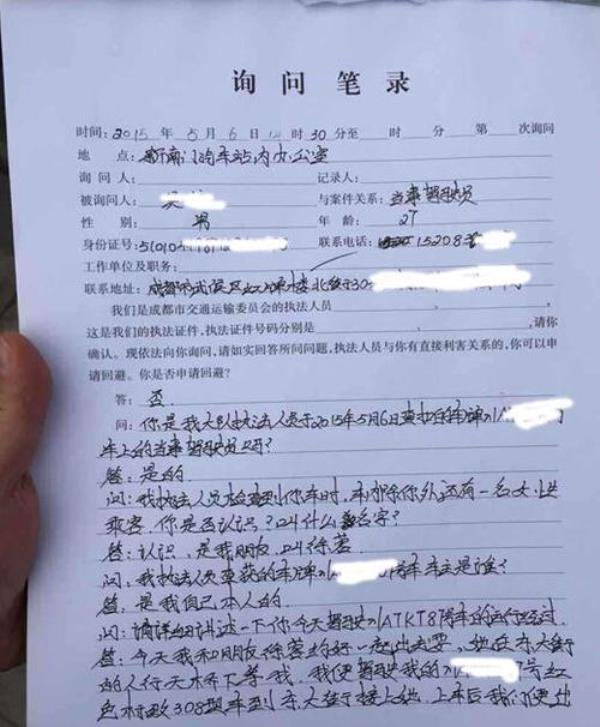 询问笔录
时间: 2015 年 5 月 6 日 时 30 分至 时 分 第 次询问
地 点: 新南门汽车站内办公室
询 问 人: 记录人:
被询问人: 吴 与案件关系: 当事驾驶员
性 别: 男 年 龄: 27
身份证号: 51010 联系电话: 15208
工作单位及职务:
联系地址: 成都市武侯区 楼北 30
我们是成都市交通运输委员会的执法人员
这是我们的执法证件,执法证件号码分别是 ,请你
确认。现依法向你询问,请如实回答所问问题,执法人员与你有直接利害关系的,你可以申
请回避。你是否申请回避?
答: 否.
问: 你是我大队执法人员于2015年5月6日查扣的车牌川
车上的当事驾驶员吗?
答: 是的.
问: 我执法人员检查到你车时,车内除你外还有一名女性
乘客,你是否认识?叫什么名字?
答: 认识,是我朋友,叫徐蓉
问: 我执法人员查获的车牌川 車车主是谁?
答: 是我自己本人的.
问: 请详细讲述一下你今天驾驶川ATKT87車的运行经过.
答: 今天我和朋友徐蓉约好一起出去耍,她在东大街
的人行天桥下等我,我便驾驶我的川 7号红
色 308轿车到东大街于接上她,上车后我们便出